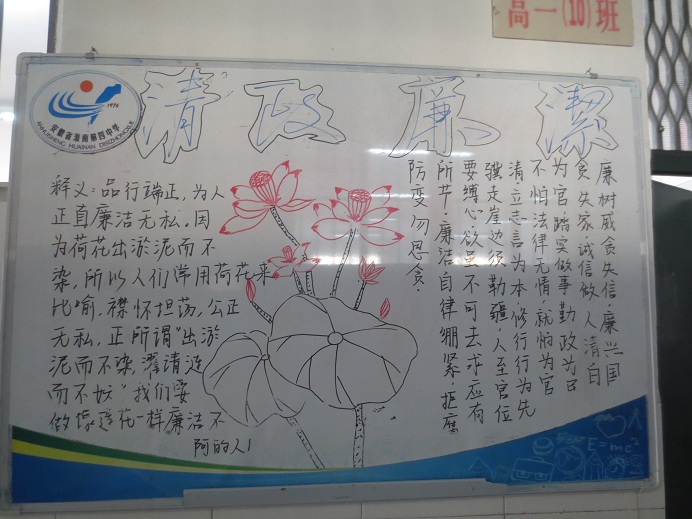 高一(10)班
清政廉潔
安徽省淮南第四中学
ANHUISHENG HUAINAN DISIZHONGXUE
释义:品行端正,为人
正直廉洁无私。因
为荷花出淤泥而不
染,所以人们常用荷花来
比喻,襟怀坦荡,公正
无私,正所谓"出淤
泥而不染,濯清涟
而不妖"我们要
做像莲花一样廉洁不
阿的人!
廉树威贪失信,廉兴国
贪失家诚信做人清白
为官踏实做事勤政为民
不怕法律无情,就怕为官
清立志言为本,修行行为先
骥走崖边须勒疆,人至官位
要缚心欲虽不可去求应有
所节,廉洁自律绷紧,拒腐
防变勿思贪.
E=mc²